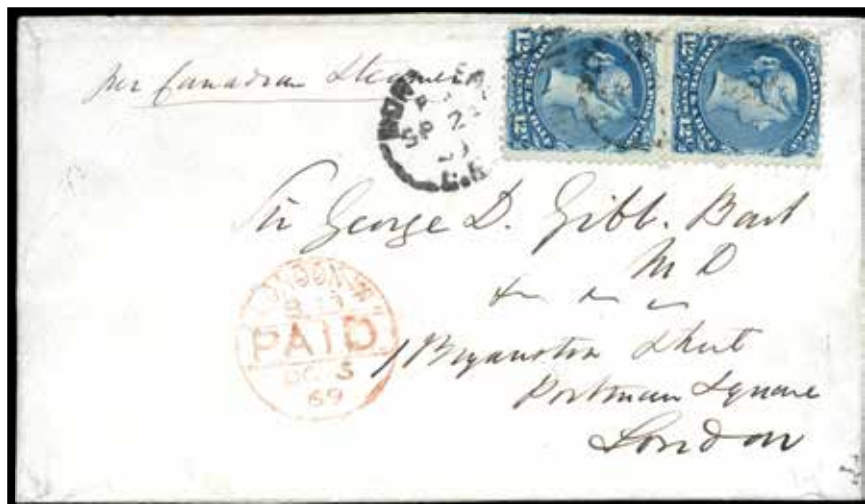 per Canadian Steamer
SP 2
12½
12½
Sir George D. Gibb. Bart
M D
1 Bryanston Street
Portman Square
London
LONDON
PAID
OC 5
69